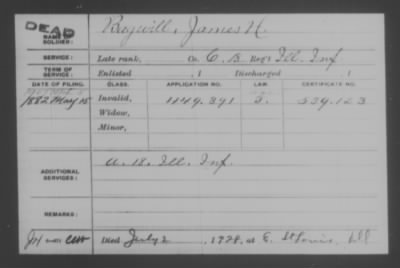 DEAD
NAME OF SOLDIER: James H.
SERVICE: Late rank, Co. C. B. Reg't Ill. Inf
TERM OF SERVICE: Enlisted , 1 Discharged , 1
DATE OF FILING. CLASS. APPLICATION NO. LAW. CERTIFICATE NO.
1882 May 15 Invalid, 449.391 539.123
Widow,
Minor,
ADDITIONAL SERVICES: A. 18. Ill. Inf.
REMARKS:
Died July 2, 1928, at E. St Louis, Ill